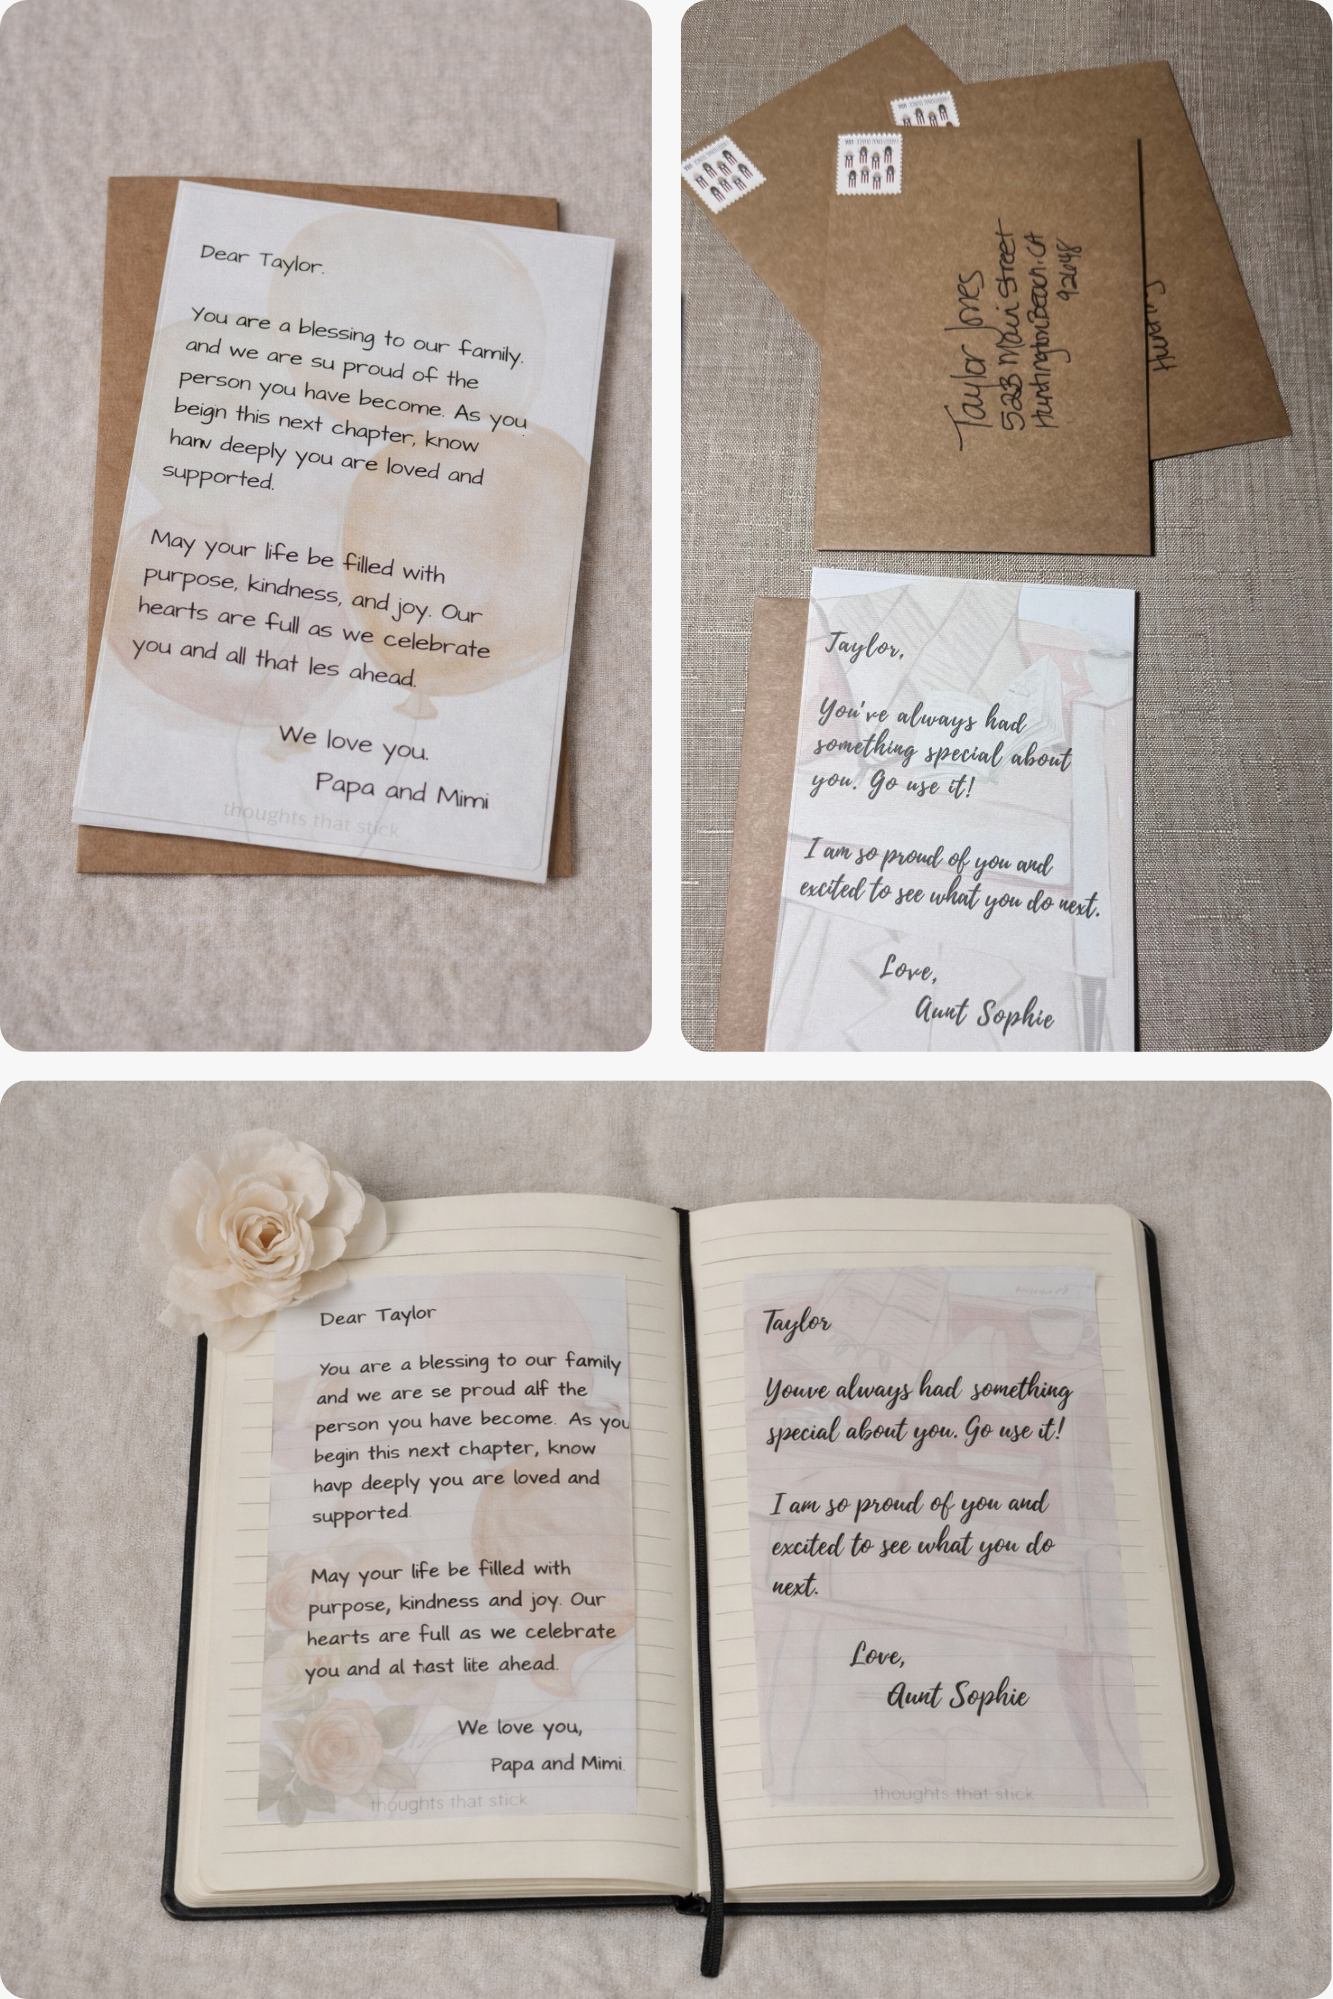 Dear Taylor.
You are a blessing to our family.
and we are su proud of the
person you have become. As you
beign this next chapter, know
hanv deeply you are loved and
supported.
May your life be filled with
purpose, kindness, and joy. Our
hearts are full as we celebrate
you and all that les ahead.
We love you.
Papa and Mimi
thoughts that stick
Taylor Jones
5223 Main Street
Huntington Beach, CA
92648
Hunting
Taylor,
You've always had
something special about
you. Go use it!
I am so proud of you and
excited to see what you do next.
Love,
Aunt Sophie
Dear Taylor
You are a blessing to our family
and we are se proud alf the
person you have become. As you
begin this next chapter, know
havp deeply you are loved and
supported.
May your life be filled with
purpose, kindness and joy. Our
hearts are full as we celebrate
you and al hast lite ahead.
We love you,
Papa and Mimi.
thoughts that stick
Taylor
Youve always had something
special about you. Go use it!
I am so proud of you and
excited to see what you do
next.
Love,
Aunt Sophie
thoughts that stick